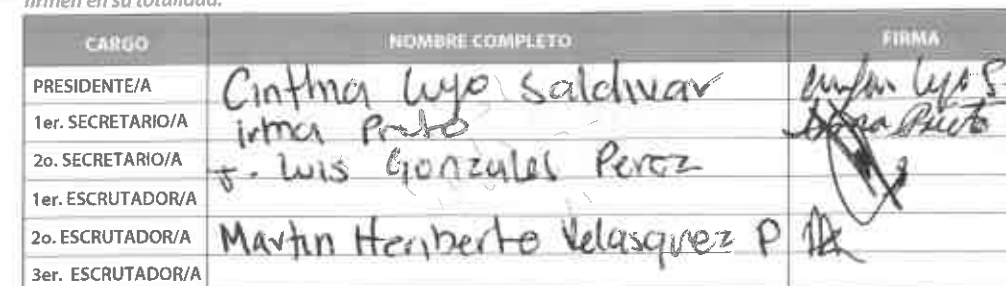 firmen en su totalidad.
CARGO NOMBRE COMPLETO FIRMA
PRESIDENTE/A Cinthia Lugo Saldivar
1er. SECRETARIO/A irma Prieto
2o. SECRETARIO/A J. Luis Gonzales Perez
1er. ESCRUTADOR/A
2o. ESCRUTADOR/A Martin Heriberto Velasquez P
3er. ESCRUTADOR/A